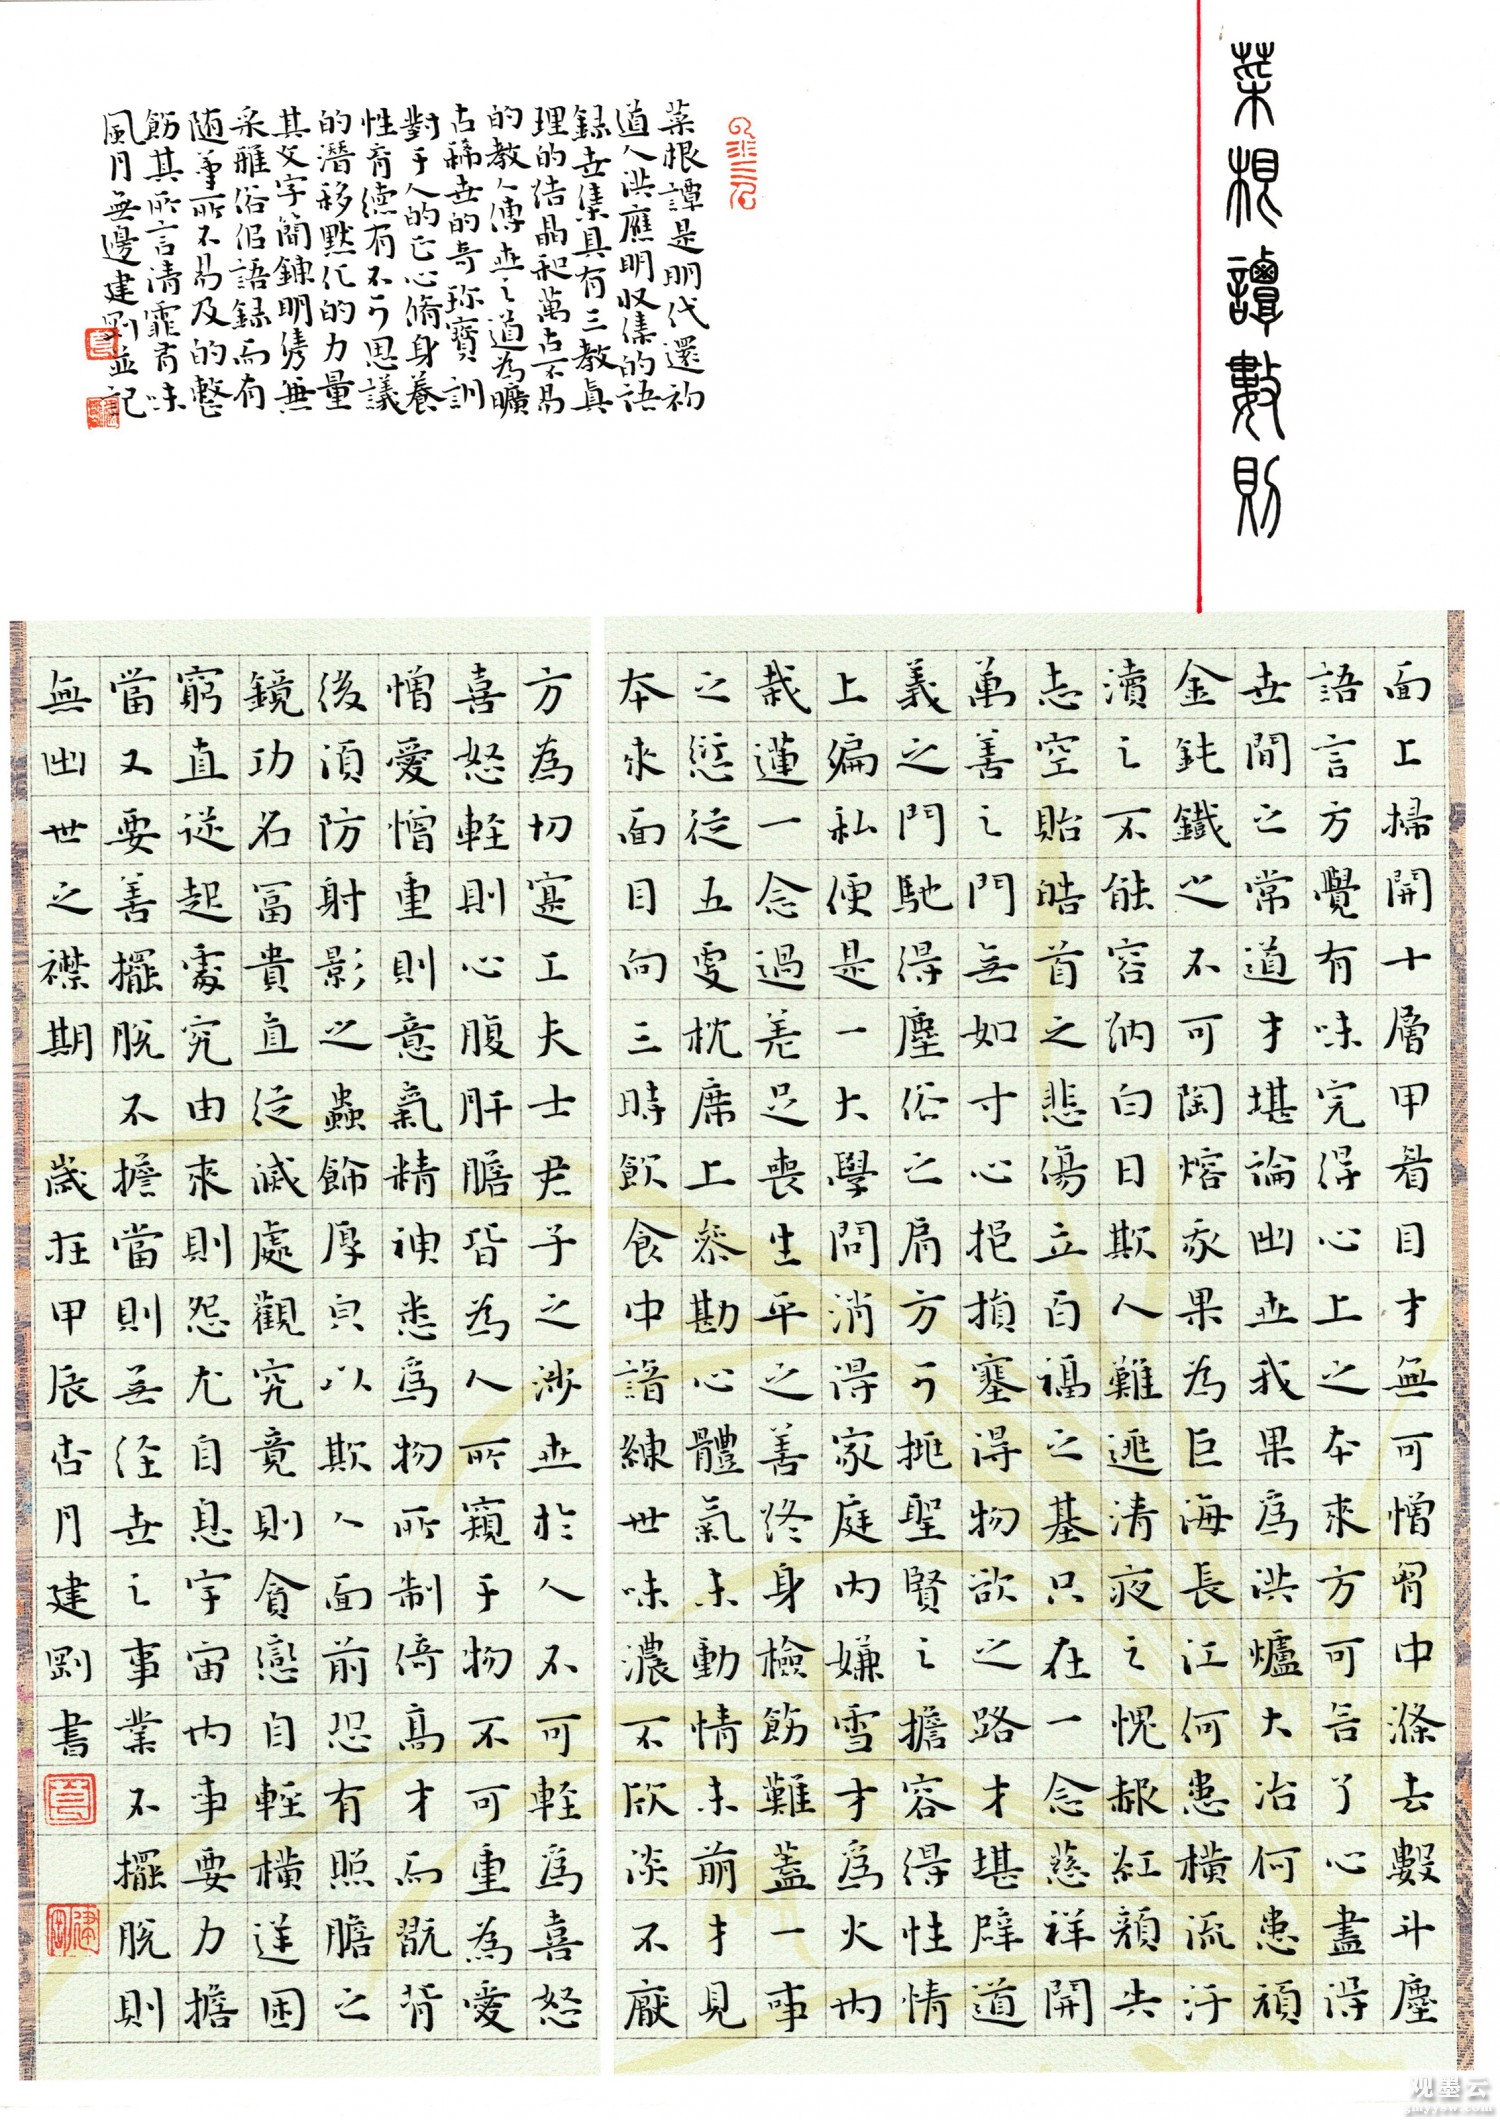 菜根譚數則
面上掃開十層甲眉目才無可憎胷中滌去數斗塵
語言方覺有味完得心上之本來方可言了心盡得
世間之常道才堪論出世我果為洪爐大冶何患頑
金鈍鐵之不可陶熔我果為巨海長江何患橫流汙
瀆之不能容納白日欺人難逃清夜之愧赧紅顏失
志空貽皓首之悲傷立百福之基只在一念慈祥開
萬善之門無如寸心挹損塞得物欲之路才堪辟道
義之門馳得塵俗之肩方可挑聖賢之擔容得性情
上偏私便是一大學問消得家庭內嫌雪才為火內
栽蓮一念過差足喪生平之善終身檢飭難蓋一事
之愆從五更枕席上參勘心體氣未動情未萌才見
本來面目向三時飲食中諳練世味濃不欣淡不厭
方為切實工夫士君子之涉世於人不可輕為喜怒
喜怒輕則心腹肝膽皆為人所窺于物不可重為愛
憎愛憎重則意氣精神悉為物所制倚高才而翫
後須防射影之蟲飾厚貌以欺人面前恐有照膽之
鏡功名富貴直從滅處觀究竟則貪戀自輕橫逆困
窮直從起處究由來則怨尤自息宇宙內事要力擔
當又要善擺脫不擔當則無經世之事業不擺脫則
無出世之襟期 歲在甲辰杏月建剛書
菜根譚是明代還初
道人洪應明收集的語
錄世集具有三教真
理的結晶和萬古不易
的教人傳世之道為曠
古稀世的奇珍寶訓
對于人的正心脩身養
性育德有不可思議
的潛移默化的力量
其文字簡鍊明雋兼
采雅俗佀語錄而有
随筆所不易及的整
飭其所言清霏有味
風月無邊建剛並記
观墨云
gmyyow.com